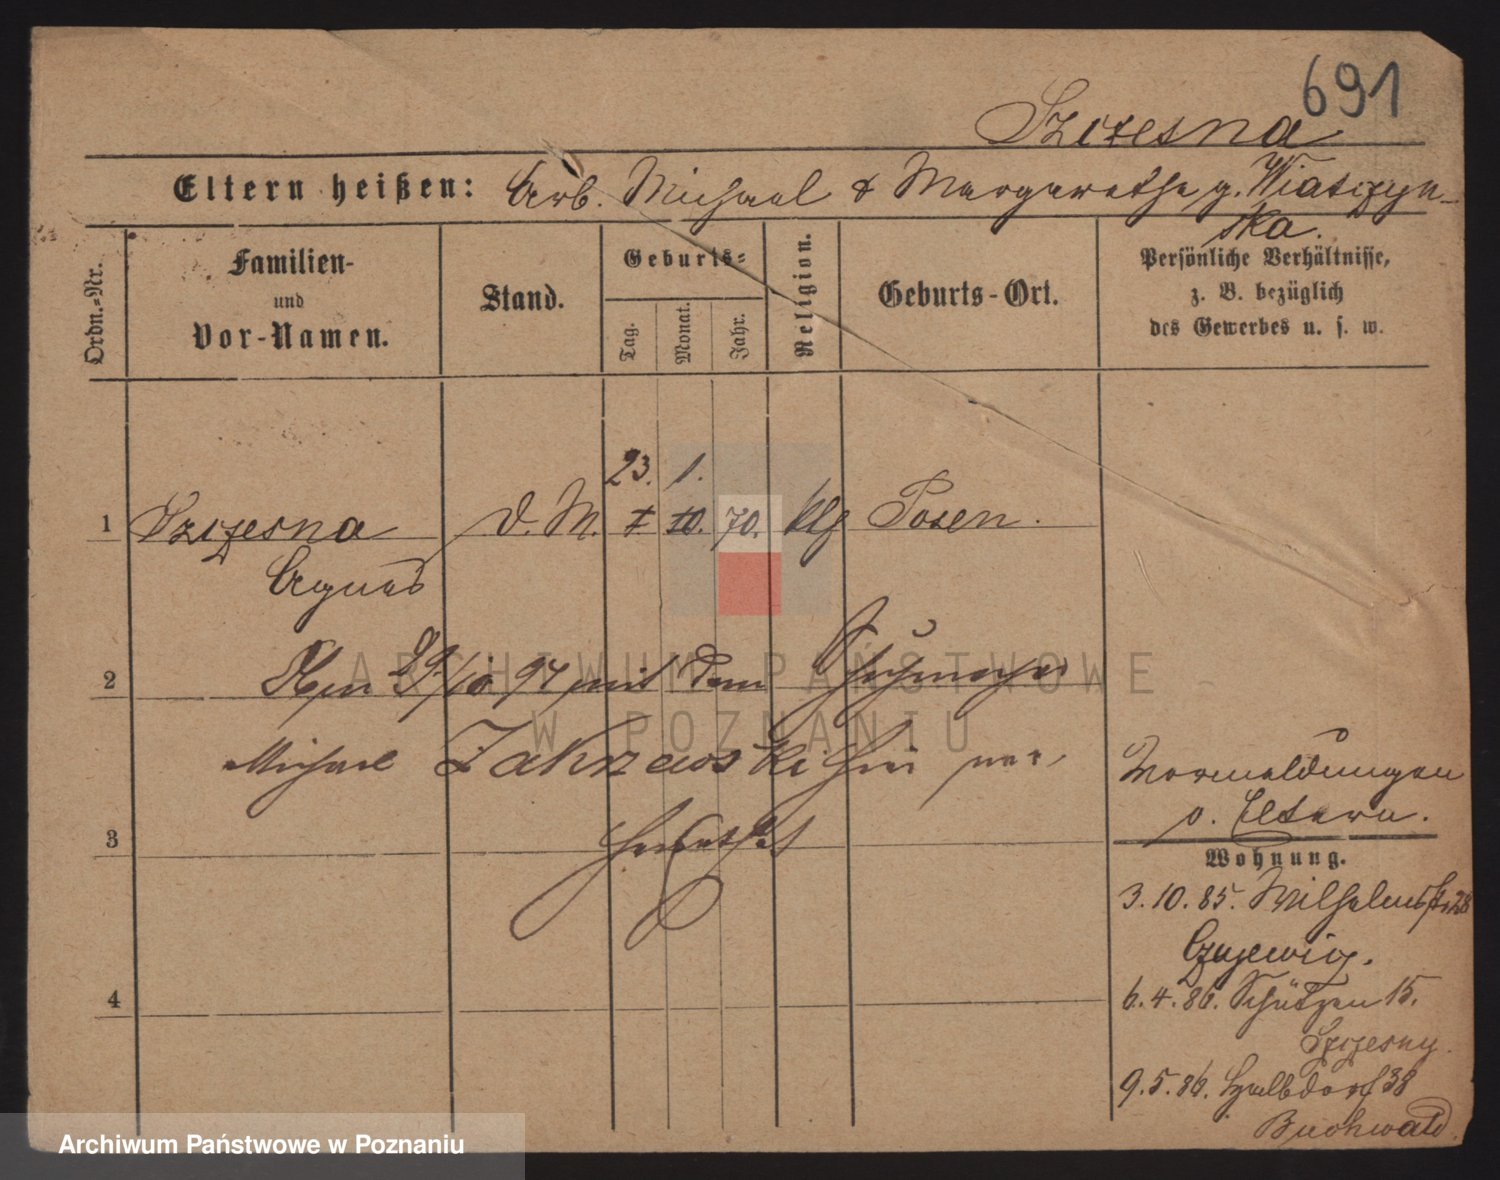 691
Szczesna
Eltern heißen: Arb. Michael & Margarethe g. Wiatczyn-
ska.
Ordn.-Nr.
Familien-
und
Vor-Namen.
Stand.
Geburts-
Tag.
Monat.
Jahr.
Religion.
Geburts-Ort.
Persönliche Verhältnisse,
z. B. bezüglich
des Gewerbes u. s. w.
23. 1.
1 Szczesna D. M. 7. 10. 70. klg Posen.
Agnes
2 Am 29/10 94 mit dem Schuhmacher
Michael Zakrzewski hier ver-
3 heirathet
4
Vormeldungen
s. Eltern.
Wohnung.
3.10.85. Wilhelmstr. 28
6.4.86. Schützen 15.
Szczesny.
9.5.86. Halbdorf 38
Buchwald
ARCHIWUM PAŃSTWOWE
W POZNANIU
Archiwum Państwowe w Poznaniu